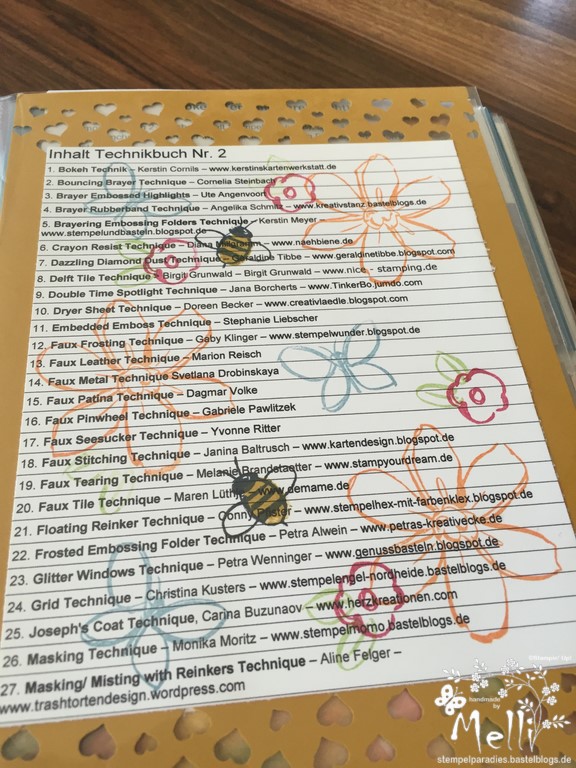 Inhalt Technikbuch Nr. 2
1. Bokeh Technik – Kerstin Cornils – www.kerstinskartenwerkstatt.de
2. Bouncing Brayer Technique – Cornelia Steinbach
3. Brayer Embossed Highlights – Ute Angenvoort
4. Brayer Rubberband Technique – Angelika Schmitz – www.kreativstanz.bastelblogs.de
5. Brayering Embossing Folders Technique – Kerstin Meyer –
www.stempelundbasteln.blogspot.de
6. Crayon Resist Technique – Diana – www.naehbiene.de
7. Dazzling Diamond Dust Technique – Geraldine Tibbe – www.geraldinetibbe.blogspot.com
8. Delft Tile Technique – Birgit Grunwald – Birgit Grunwald – www.nice - stamping.de
9. Double Time Spotlight Technique – Jana Borcherts – www.TinkerBo.jumdo.com
10. Dryer Sheet Technique – Doreen Becker – www.creativlaedle.blogspot.com
11. Embedded Emboss Technique – Stephanie Liebscher
12. Faux Frosting Technique – Gaby Klinger – www.stempelwunder.blogspot.de
13. Faux Leather Technique – Marion Reisch
14. Faux Metal Technique Svetlana Drobinskaya
15. Faux Patina Technique – Dagmar Volke
16. Faux Pinwheel Technique – Gabriele Pawlitzek
17. Faux Seesucker Technique – Yvonne Ritter
18. Faux Stitching Technique – Janina Baltrusch – www.kartendesign.blogspot.de
19. Faux Tearing Technique – Melanie Brandstaetter – www.stampyourdream.de
20. Faux Tile Technique – Maren
21. Floating Reinker Technique – Conny – www.stempelhex-mit-farbenklex.blogspot.de
22. Frosted Embossing Folder Technique – Petra Alwein – www.petras-kreativecke.de
23. Glitter Windows Technique – Petra Wenninger – www.genussbasteln.blogspot.de
24. Grid Technique – Christina Kusters – www.stempelengel-nordheide.bastelblogs.de
25. Joseph's Coat Technique, Carina Buzunaov – www.herzkreationen.com
26. Masking Technique – Monika Moritz – www.stempelmomo.bastelblogs.de
27. Masking/ Misting with Reinkers Technique – Aline Felger –
www.trashtortendesign.wordpress.com
handmade
by
Melli
stempelparadies.bastelblogs.de